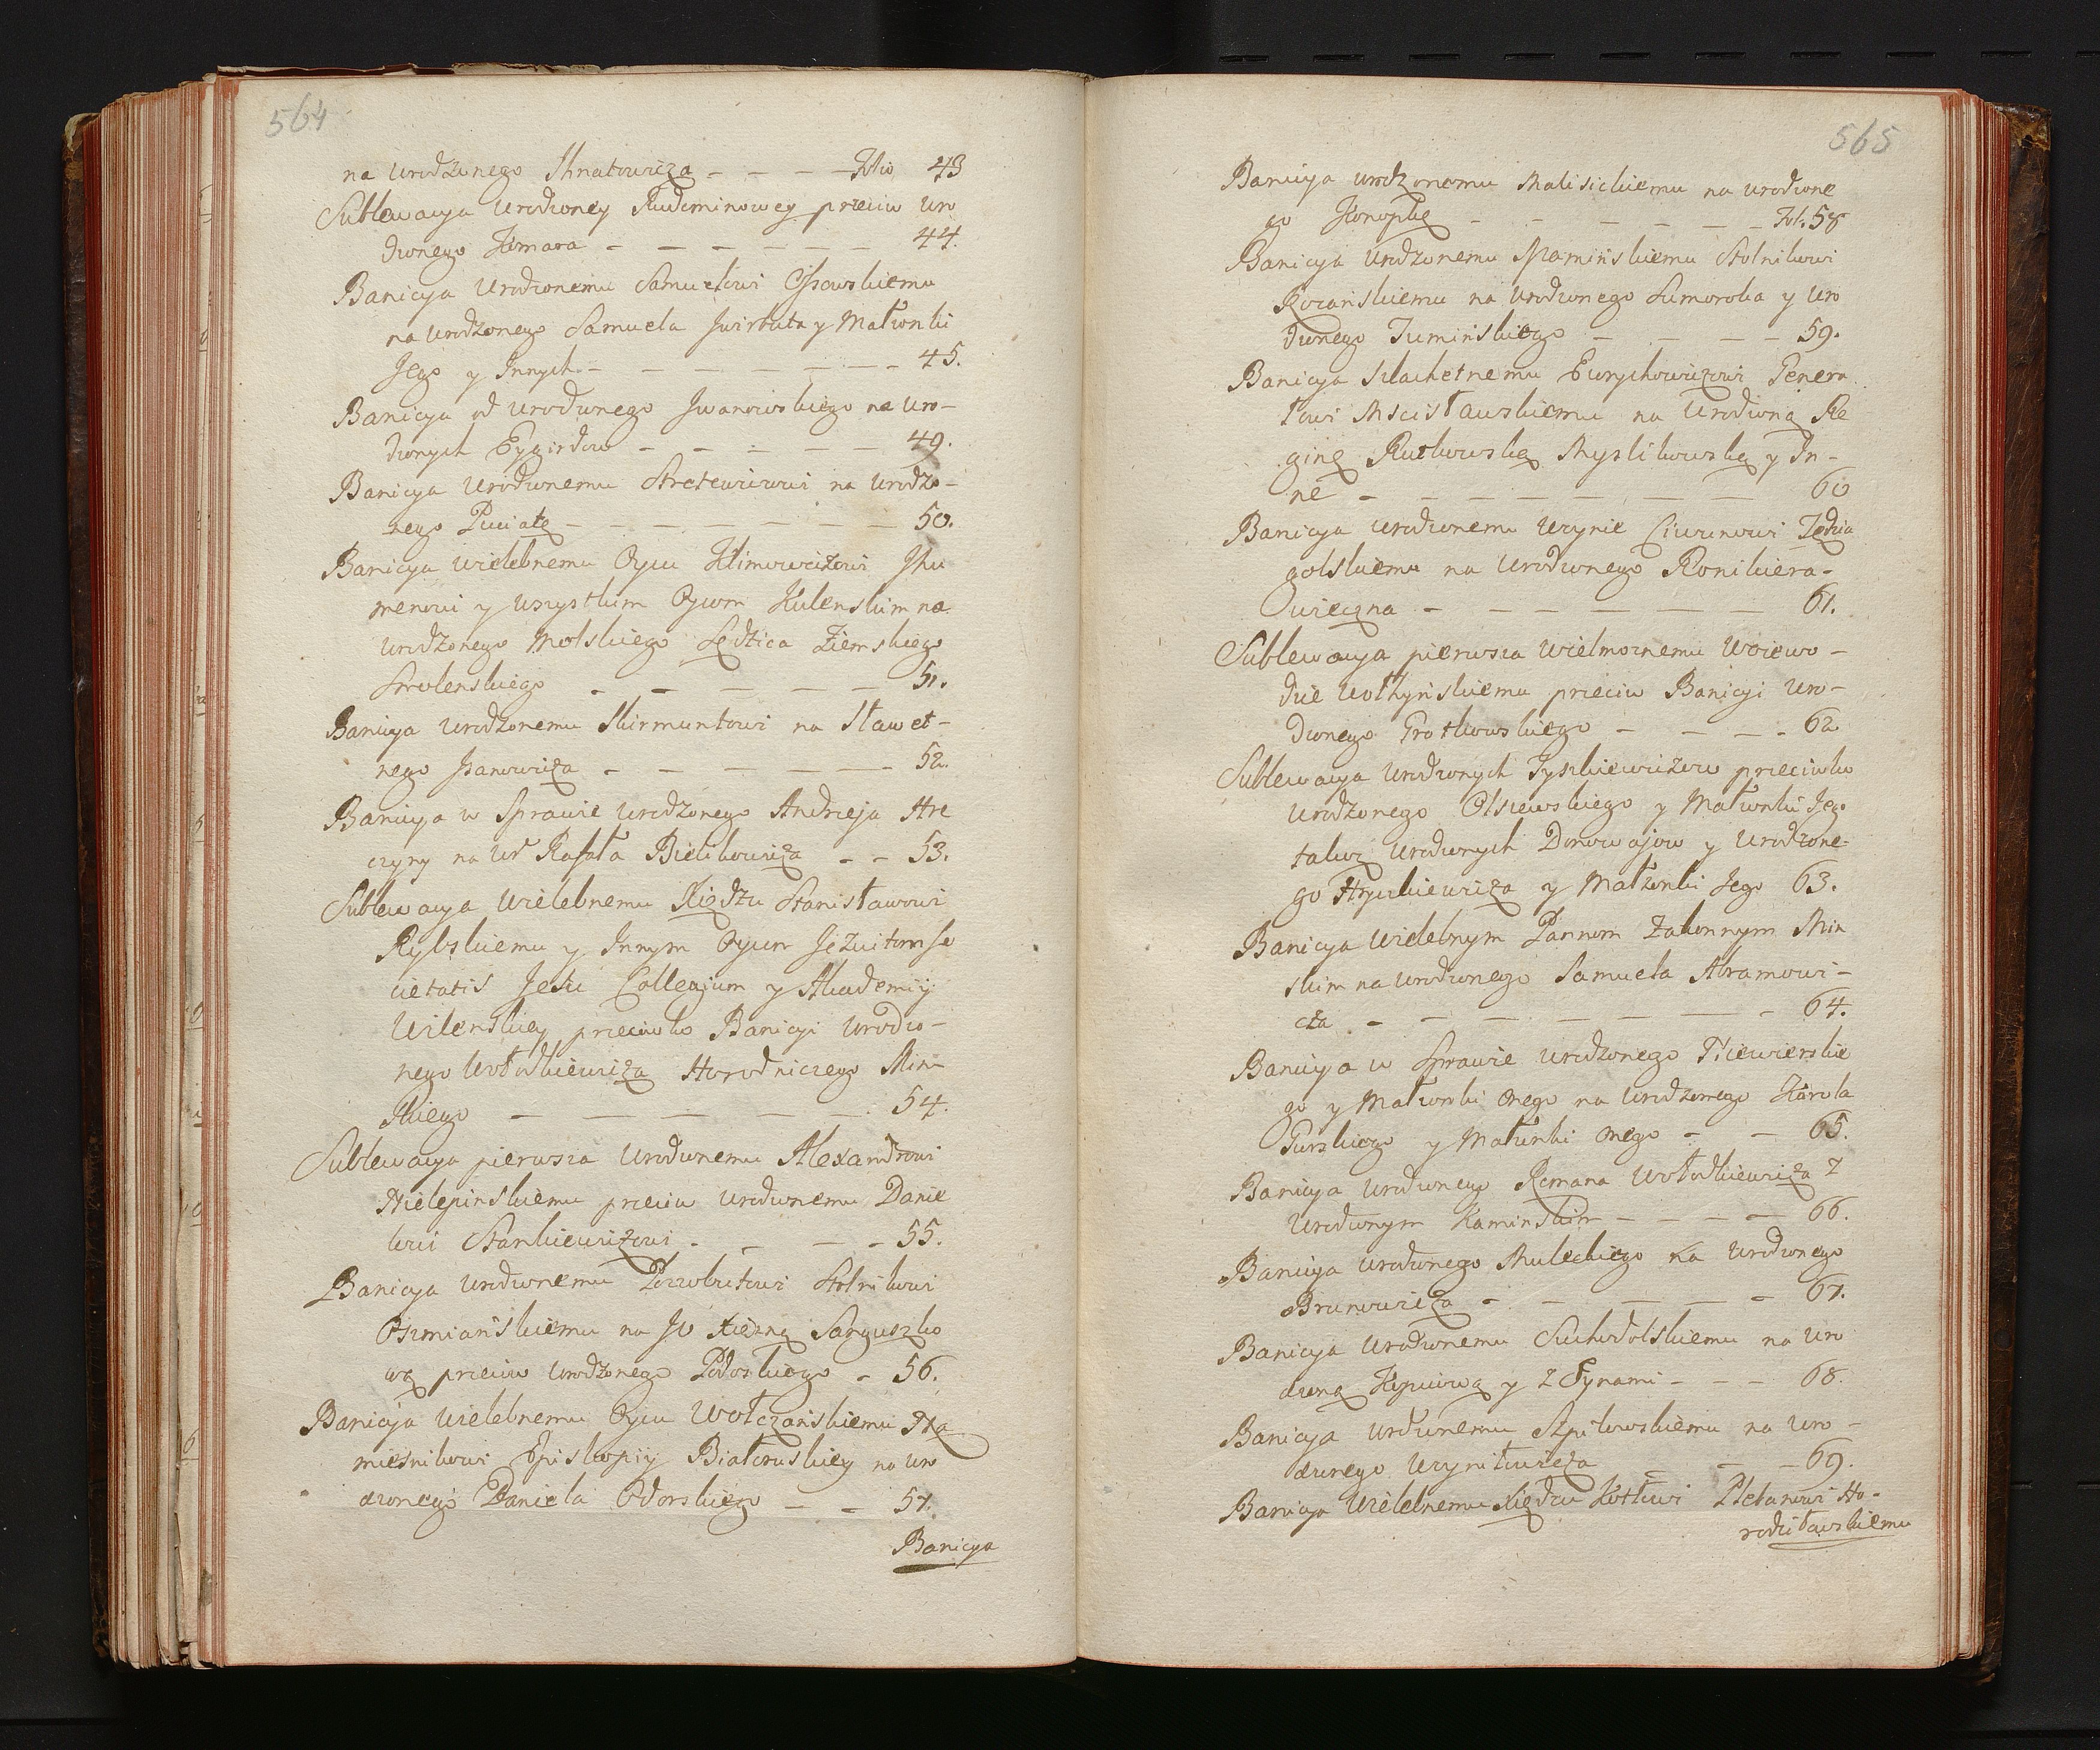 564
na urodzonego Ihnatowicza - - - - Folio 43
Sublewacya Urodzoney Rudominowey przeciw Uro
dzonego Komara - - - - - - 44.
Banicya Urodzonemu Samuelowi Ossowskiemu
na urodzonego Samuela Jwirbuta y Małżonki
Jego y Innych - - - - - - - 45.
Banicya od urodzonego Jwanowskiego na Uro-
dzonych Eygirdow - - - - - 49.
Banicya Urodzonemu na Urodzo-
nego Puciatę - - - - - - - 50.
Banicya wielebnemu Oycu Klimowiczowi Jhu
menowi y wszystkim Oycom Kuteńskim na
urodzonego Mołskiego Sędzica Ziemskiego
Smolenskiego - - - - - 51.
Banicya urodzonemu Skirmuntowi na Sławet-
nego Jsanowicza - - - - - - 52.
Banicya w Sprawie urodzonego Andrzeja Hre
czyny na Ur Rafała Bielikowicza - - 53.
Sublewacya Wielebnemu Xiędzu Stanisławowi
Rybskiemu y Innym Oycom Jezuitom So
cietatis Jesu Collegium y Akademij
Wilenskiey przeciwko Banicyi Urodzo-
nego Wołodkiewicza Horodniczego Min-
skiego - - - - - 54.
Sublewacya pierwsza Urodzonemu Alexandrowi
Nielepinskiemu przeciw urodzonemu Danie
lowi Stankiewiczowi - - - - 55.
Banicya urodzonemu Pozzobutowi Stolnikowi
Oszmiańskiemu na JO Xiężnę Sanguszko
wę przeciw urodzonego Podoskiego - 56.
Banicya wielebnemu Oycu Wołczańskiemu Na
miesnikowi Episkopiy Białoruskiey na Uro
dzonego Daniela Odorskiego - - 57.
Banicya
565
Banicya urodzonemu Malisickiemu na urodzone
go Konopkę - - - - - - Fol. 58
Banicya Urodzonemu Stolnikowi
na urodzonego Sumoroka y Uro
dzonego Tumińskiego - - - - 59.
Banicya Szlachetnemu Eurychowiczowi Genera
łowi Mscisławskiemu na Urodzoną Re
ginę Rutkowskę Myslikowskę y In-
ne - - - - - - - 60
Banicya urodzonemu Uzynie Ciwunowi Zędzia
golskiemu na Urodzonego Ronikiera-
wiecz na - - - - - - 61.
Sublewacya pierwsza Wielmoznemu Woiewo-
dzie Wołhyńskiemu przeciw Banicyi Uro-
dzonego Grotkowskiego - - - - 62
Sublewacya Urodzonych Tyszkiewiczow przeciwko
Urodzonego Olszewskiego y Małżonki Jego
także Urodzonych Donowajow y Urodzone-
go Hryckiewicza y Małżonki Jego 63.
Banicya Wielebnym Pannom Zakonnym Min
skim na urodzonego Samuela Abramowi-
cza - - - - - - - 64.
Banicya w Sprawie urodzonego Tciewierskie
go y Małżonki onego na Urodzonego Karola
Gurskiego y Małżonki onego - - 65.
Banicya urodzonego Romana Wołodkiewicza z
Urodzonym Kaminskim - - - - 66.
Banicya urodzonego Muleckiego na Urodzonego
Brunowicza - - - - - 67.
Banicya Urodzonemu Suchodolskiemu na Uro
dzoną Kopciową y z Synami - - - 68.
Banicya urodzonemu Szpilewskiemu na Uro-
dzonego - - - 69.
Banicya Wielebnemu Xiędzu Kotłowi Plebanowi Ho-
rodziławskiemu